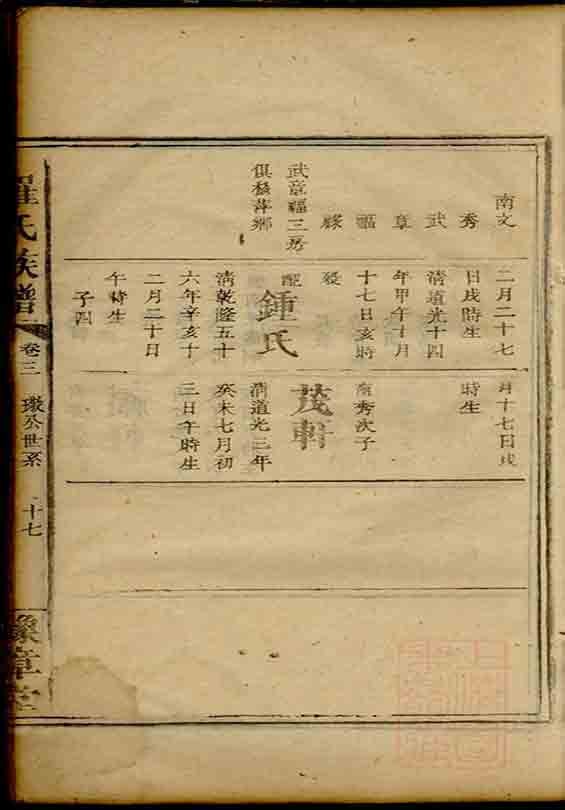 南文
秀
武
章
福
祿
武章福三房
俱移萍鄉
二月二十七
日戌時生
清道光十四
年甲午十月
十七日亥時
歿
配鍾氏
清乾隆五十
六年辛亥十
二月二十日
午時生
子四
月十七日戌
時生
南秀次子
茂軒
清道光三年
癸未七月初
三日午時生
羅氏族譜
卷三
璥公世系
十七
豫章堂